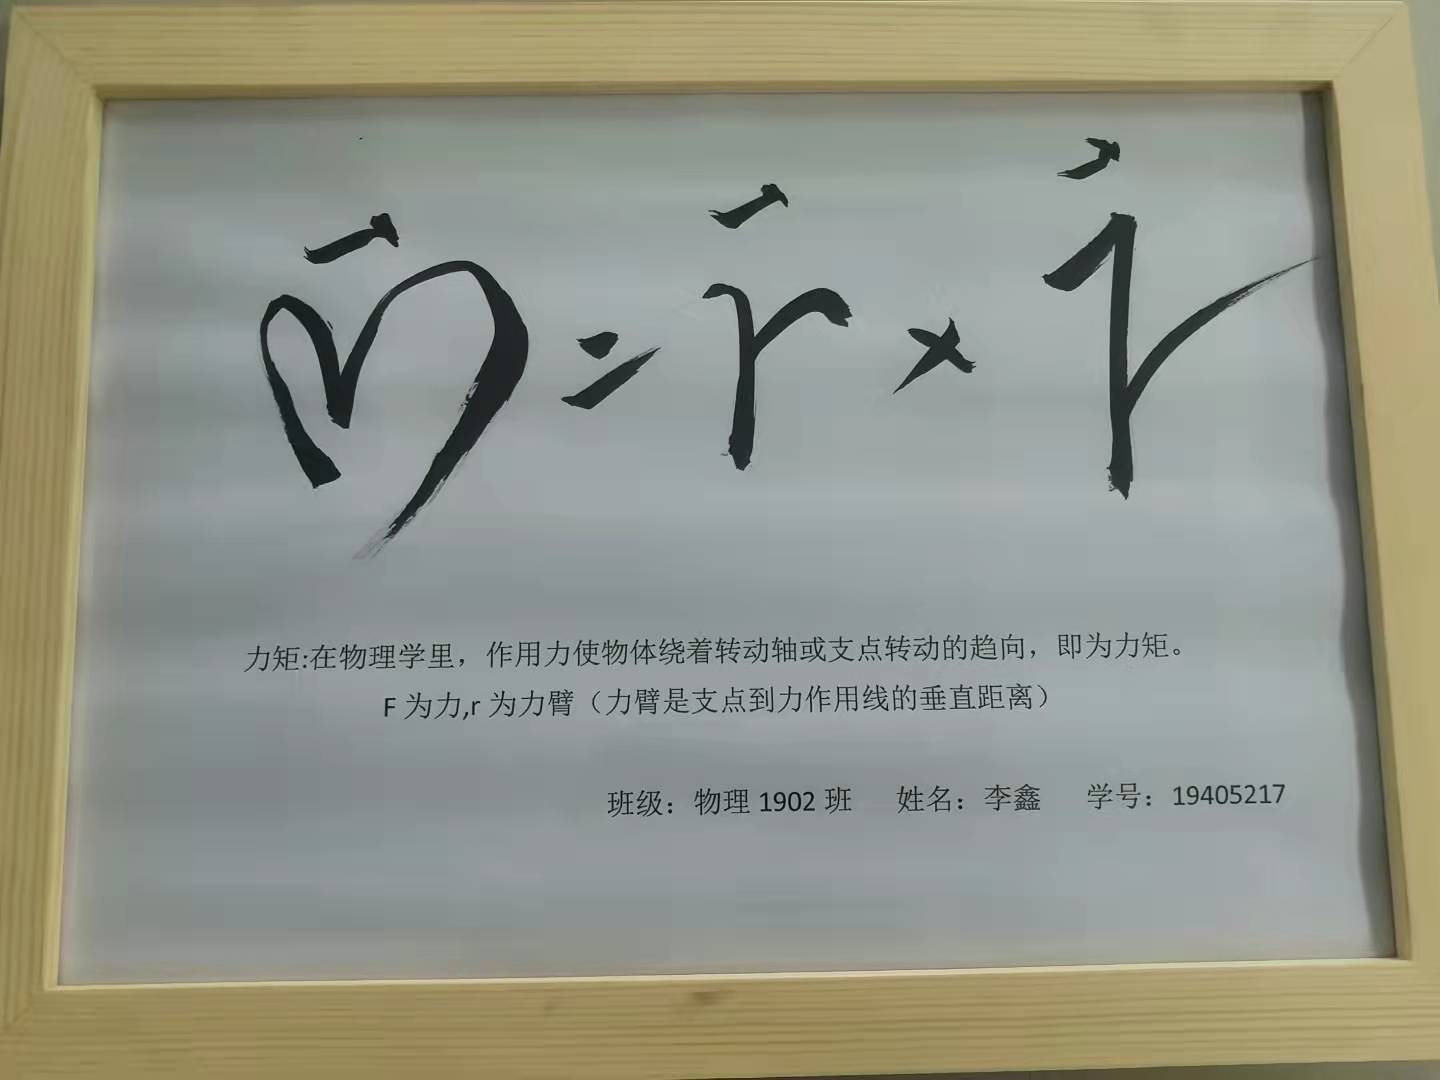 m⃗ = r⃗ × F⃗
力矩:在物理学里，作用力使物体绕着转动轴或支点转动的趋向，即为力矩。
F 为力,r 为力臂（力臂是支点到力作用线的垂直距离）
班级：物理 1902 班 姓名：李鑫 学号：19405217